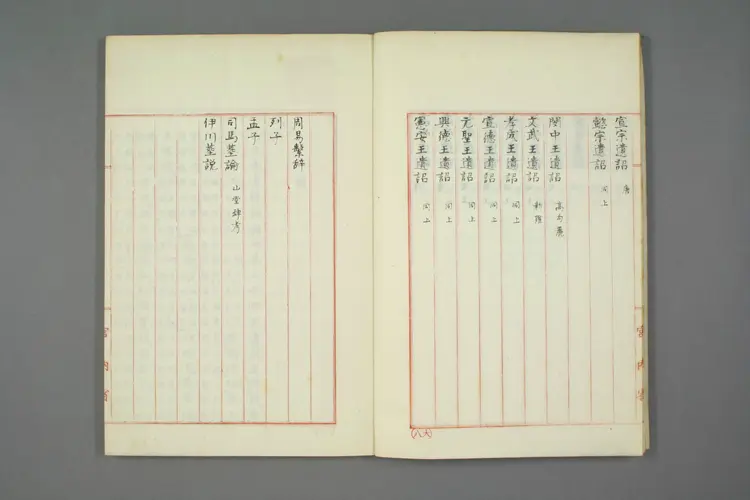 宣宗遺詔 唐
懿宗遺詔 同上
閔中王遺詔 高句麗
文武王遺詔 新羅
孝成王遺詔 同上
宣德王遺詔 同上
元聖王遺詔 同上
興德王遺詔 同上
憲安王遺詔 同上
宮内省
周易繫辞
列子
孟子
司馬墓論 山堂肆考
伊川墓説
宮内省